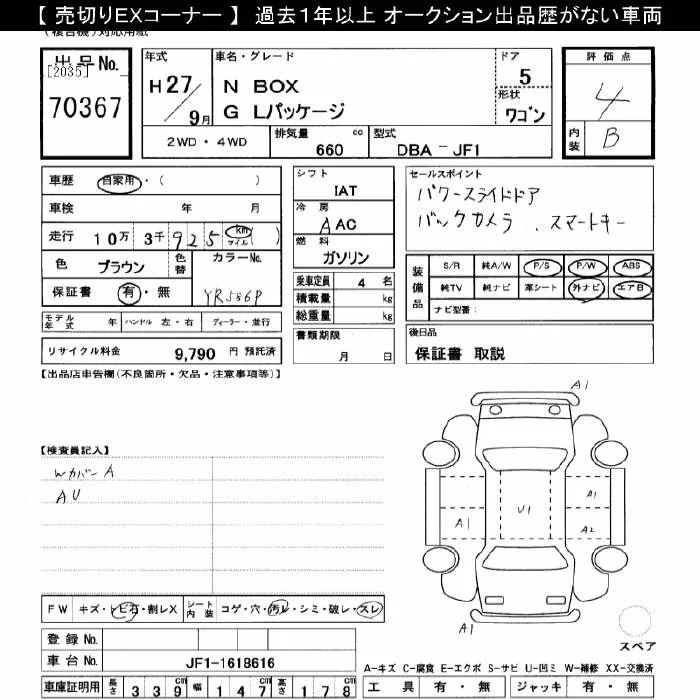 【 売切りEXコーナー 】 過去1年以上 オークション出品歴がない車両
出品No.
[2035]
70367
年式
H27/9月
車名・グレード
N BOX
G Lパッケージ
ドア
5
形状
ワゴン
評価点
4
内装
B
2WD・4WD
排気量
660 cc
型式
DBA-JF1
車歴 自家用・( )
車検 年 月
走行 10万 3千 925 km マイル ( )
色 ブラウン
色替
カラーNo.
YR586P
保証書 有・無
モデル年式 年
ハンドル 左・右
ディーラー・並行
リサイクル料金 9,790 円 預託済
シフト
IAT
冷房
AAC
燃料
ガソリン
乗車定員 4 名
積載量 kg
総重量 kg
書類期限
月 日
セールスポイント
パワースライドドア
バックカメラ 、スマートキー
装備品
S/R 純A/W P/S P/W ABS
純TV 純ナビ 革シート 外ナビ エアB
ナビ型番:
後日品
保証書 取説
【出品店申告欄(不良箇所・欠品・注意事項等)】
【検査員記入】
Wカバー A
AU
A1
A1
A1
U1
A2
A1
スペア
FW キズ・トビ石・割レX
シート内装 コゲ・穴・汚レ・シミ・破レ・スレ
登録 No.
車台 No. JF1-1618616
車庫証明用 長さ 339 cm 幅 147 cm 高さ 178 cm
A-キズ C-腐食 E-エクボ S-サビ U-凹ミ W-補修 XX-交換済
工具 有・無 ジャッキ 有・無